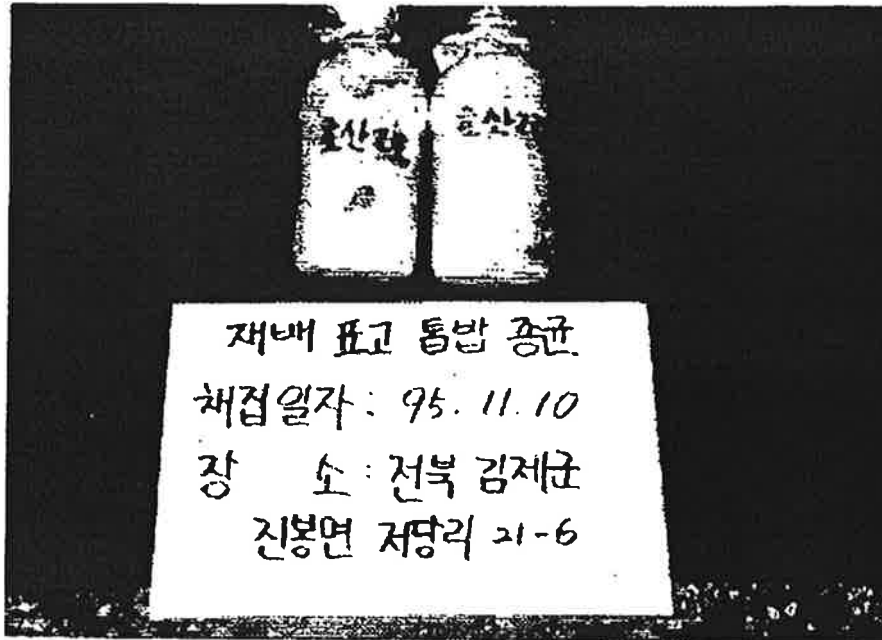 재배 표고 톱밥 종균.
채접일자 : 95. 11. 10
장 소 : 전북 김제군
진봉면 저당리 21-6